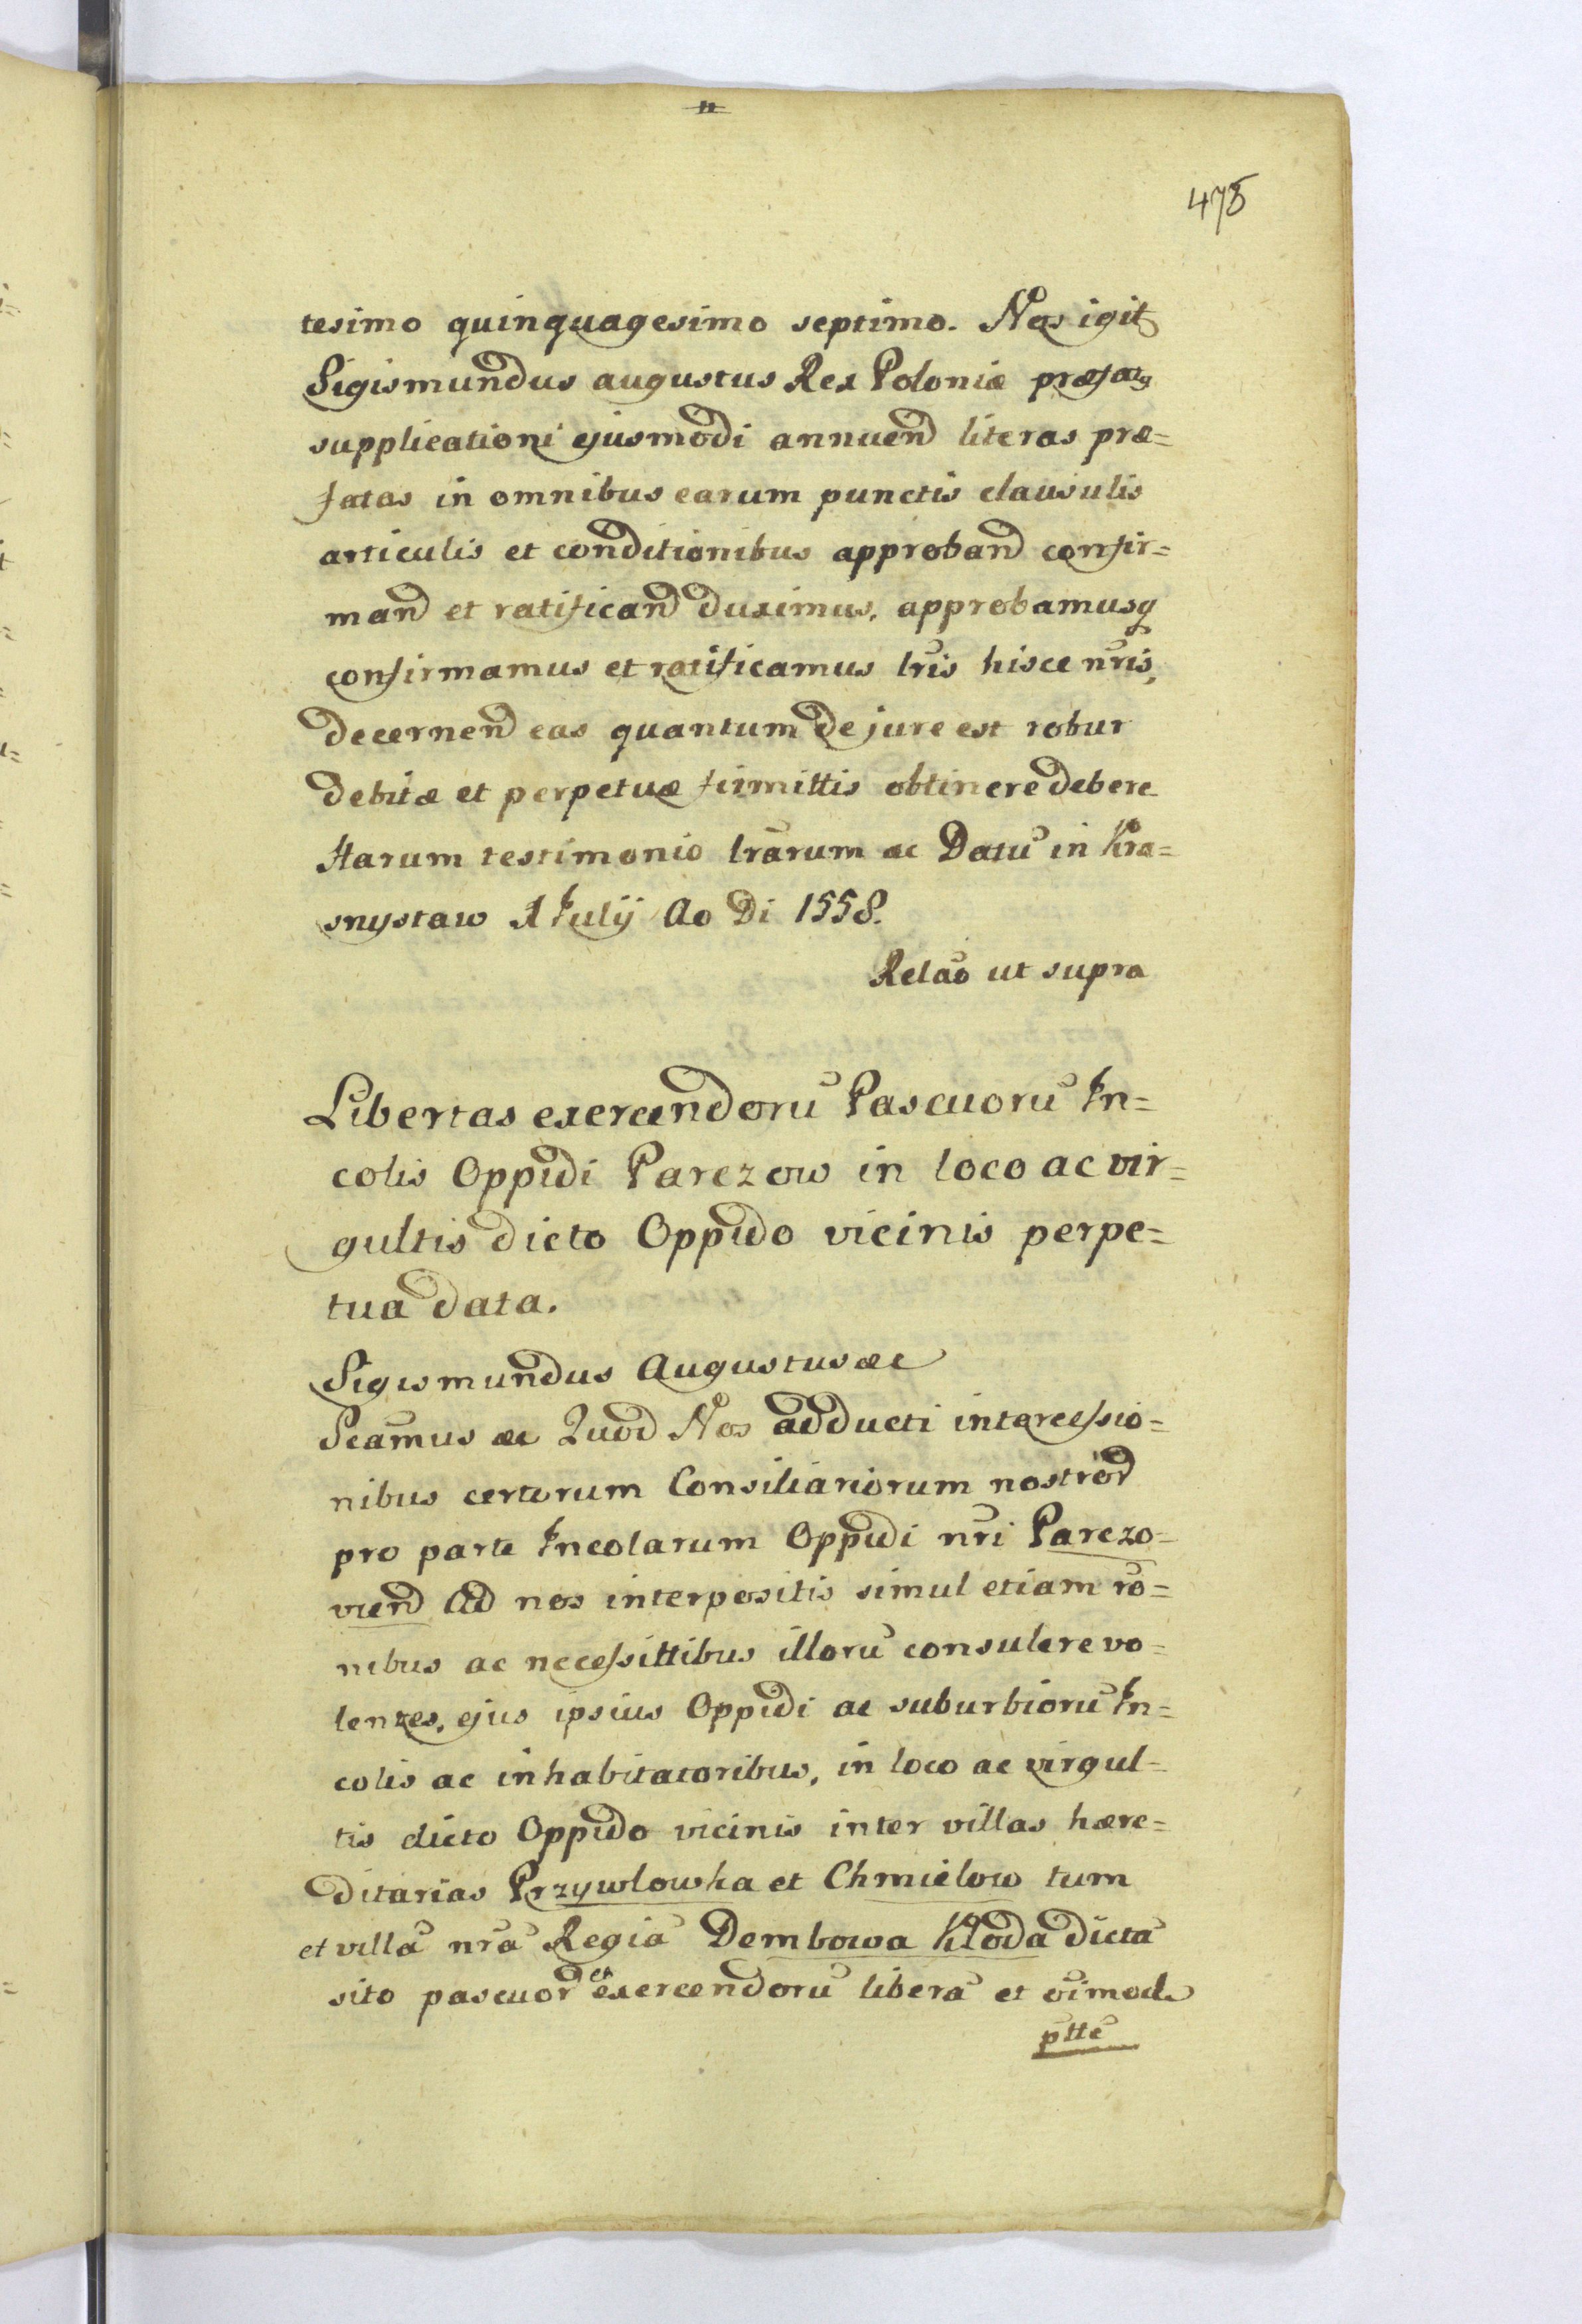 478
tesimo quinquagesimo septimo. Nos igit
Sigismundus augustus Rex Poloniæ præfatg
supplicationi ejusmodi annuend literas præ=
fatas in omnibus earum punctis clausulis
articulis et conditionibus approband confir=
mand et ratificand duximus, approbamusq
confirmamus et ratificamus lr̃is hisce nr̃is,
decernend eas quantum de jure est robur
debitæ et perpetuæ firmittis obtinere debere
Harum testimonio lr̃arum ac Datũ in Kra=
snystaw 1 Julij Ao Di 1558.
Relaõ ut supra
Libertas exercendorũ Pascuorũ In=
colis Oppidi Parczow in loco ac vir=
gultis dicto Oppido vicinis perpe=
tua data.
Sigismundus Augustus æc
Scãmus æc Quod Nos adducti intercessio=
nibus certorum Consiliariorum nostrord
pro parte Incolarum Oppidi nr̃i Parczo=
viend Ad nos interpositis simul etiam rõ=
nibus ac necessittibus illorũ consulere vo=
lentes, ejus ipsius Oppidi ac suburbiorũ In=
colis ac inhabitatoribus, in loco ac virgul=
tis dicto Oppido vicinis inter villas hære=
ditarias Przywlowka et Chmielow tum
et villã nr̃ã Regiã Dembowa Kloda dictã
sito pascuor et exercendorũ liberã et oĩmod
ptte